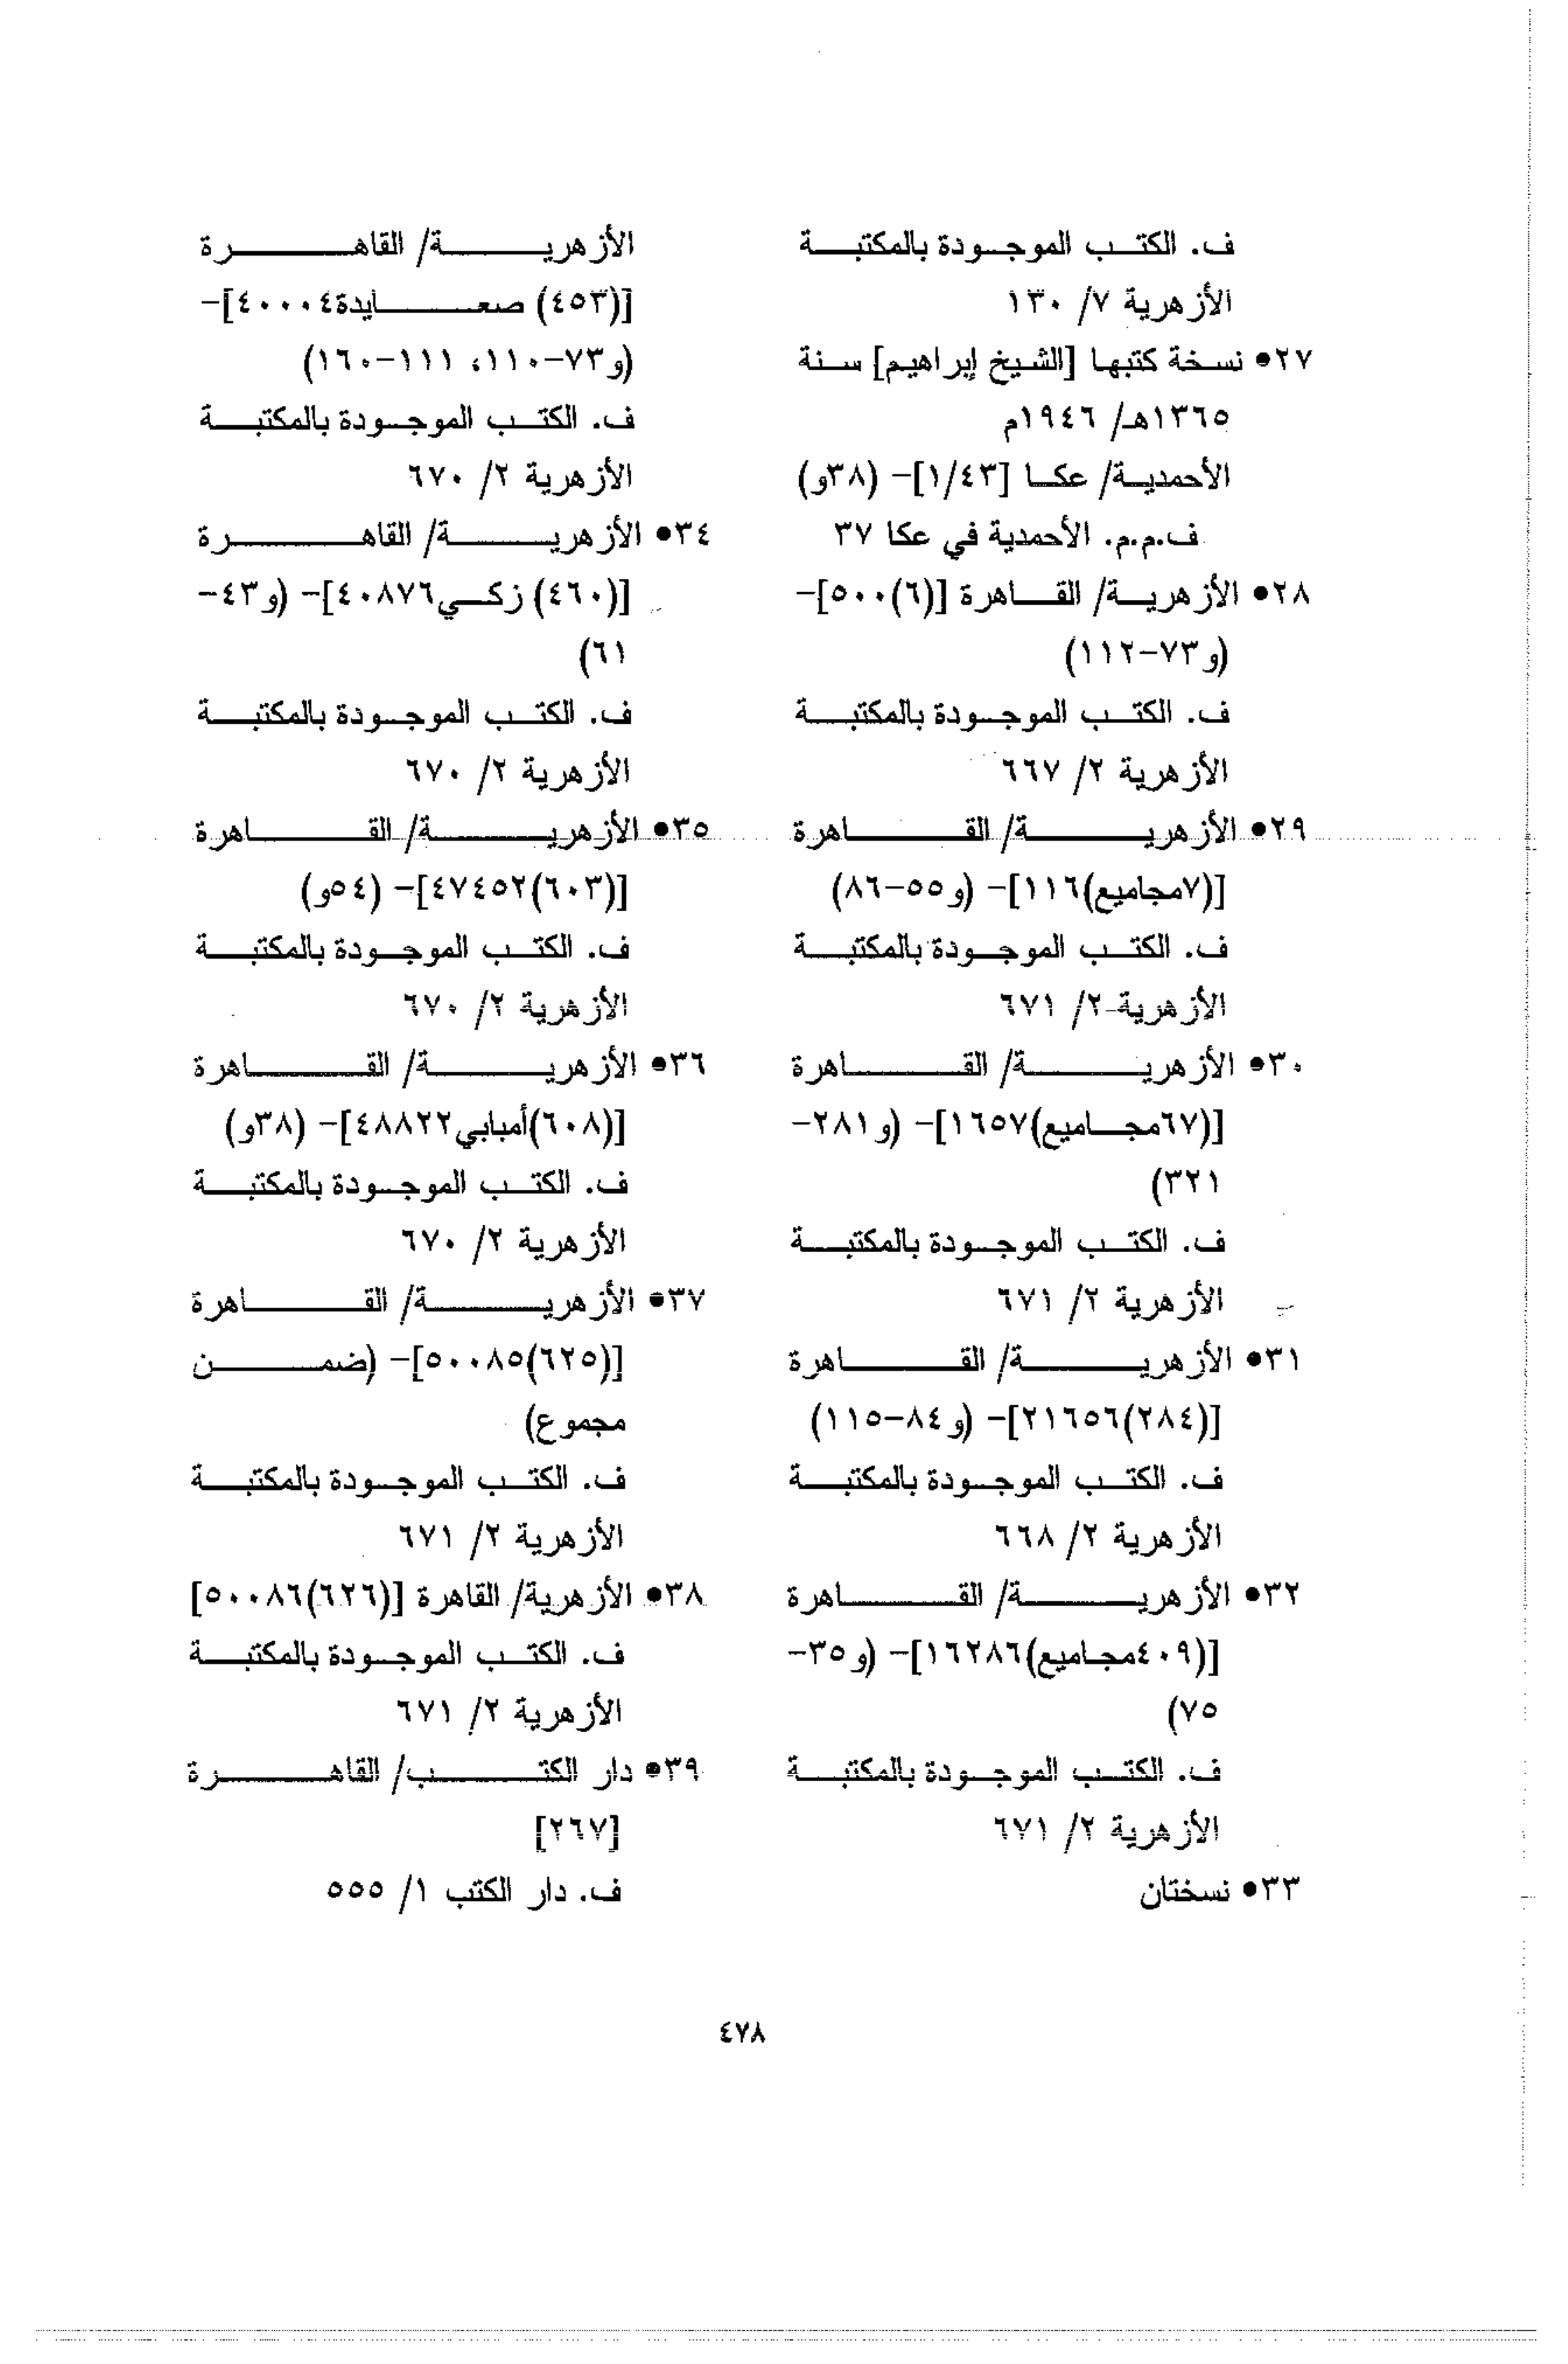 ف. الكتب الموجودة بالمكتبة
الأزهرية ٧/ ١٣٠
٢٧• نسخة كتبها [الشيخ إبراهيم] سنة
١٣٦٥هـ/ ١٩٤٦م
الأحمدية/ عكا [١/٤٣]- (٣٨و)
ف.م.م. الأحمدية في عكا ٣٧
٢٨• الأزهرية/ القاهرة [(٦)٥٠٠]-
(و٧٣-١١٢)
ف. الكتب الموجودة بالمكتبة
الأزهرية ٢/ ٦٦٧
٢٩• الأزهرية/ القاهرة
[(٧مجاميع)١١٦]- (و٥٥-٨٦)
ف. الكتب الموجودة بالمكتبة
الأزهرية ٢/ ٦٧١
٣٠• الأزهرية/ القاهرة
[(٦٧مجاميع)١٦٥٧]- (و٢٨١-
٣٢١)
ف. الكتب الموجودة بالمكتبة
الأزهرية ٢/ ٦٧١
٣١• الأزهرية/ القاهرة
[(٢٨٤)٢١٦٥٦]- (و٨٤-١١٥)
ف. الكتب الموجودة بالمكتبة
الأزهرية ٢/ ٦٦٨
٣٢• الأزهرية/ القاهرة
[(٤٠٩مجاميع)١٦٢٨٦]- (و٣٥-
٧٥)
ف. الكتب الموجودة بالمكتبة
الأزهرية ٢/ ٦٧١
٣٣• نسختان
الأزهرية/ القاهرة
[(٤٥٣) صعايدة٤٠٠٠٤]-
(و٧٣-١١٠، ١١١-١٦٠)
ف. الكتب الموجودة بالمكتبة
الأزهرية ٢/ ٦٧٠
٣٤• الأزهرية/ القاهرة
[(٤٦٠) زكي٤٠٨٧٦]- (و٤٣-
٦١)
ف. الكتب الموجودة بالمكتبة
الأزهرية ٢/ ٦٧٠
٣٥• الأزهرية/ القاهرة
[(٦٠٣)٤٧٤٥٢]- (٥٤و)
ف. الكتب الموجودة بالمكتبة
الأزهرية ٢/ ٦٧٠
٣٦• الأزهرية/ القاهرة
[(٦٠٨)أمبابي٤٨٨٢٢]- (٣٨و)
ف. الكتب الموجودة بالمكتبة
الأزهرية ٢/ ٦٧٠
٣٧• الأزهرية/ القاهرة
[(٦٢٥)٥٠٠٨٥]- (ضمن
مجموع)
ف. الكتب الموجودة بالمكتبة
الأزهرية ٢/ ٦٧١
٣٨• الأزهرية/ القاهرة [(٦٢٦)٥٠٠٨٦]
ف. الكتب الموجودة بالمكتبة
الأزهرية ٢/ ٦٧١
٣٩• دار الكتب/ القاهرة
[٢٦٧]
ف. دار الكتب ١/ ٥٥٥
٤٧٨